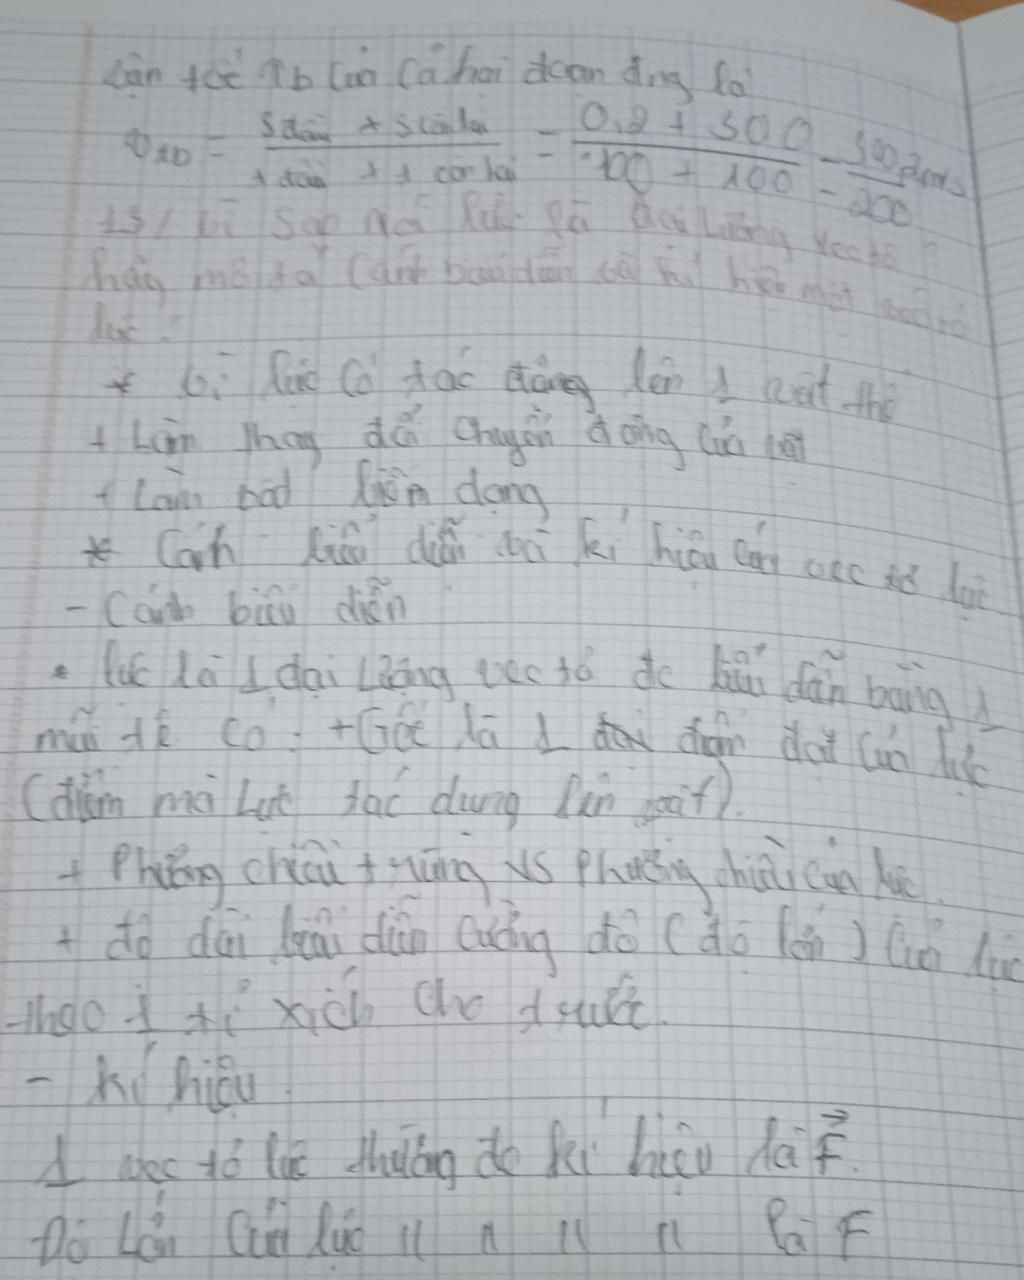 Vận tốc Tb của cả hai đoạn đng là
s đầu + s còn lại 0,2 + 300 300,2 m/s
t đầu + t còn lại 100 + 100 200
13/ Vì sao nói lực là đại lượng vectơ?
hãy mô tả cách biểu diễn và kí hiệu một vectơ
lực.
* Vì lực có tác động lên 1 vật thể
+ Làm thay đổi chuyển động của vật
+ Làm vật biến dạng
* Cách biểu diễn và kí hiệu của vec tơ lực
- Cách biểu diễn
• lực là 1 đại lượng vec tơ đc biểu diễn bằng 1
mũi tê có: + Gốc là 1 điểm đặt của lực
(điểm mà Lực tác dụng lên vật).
+ Phương chiều trùng vs Phương chiều của lực.
+ độ dài biểu diễn cường độ (độ lớn) của lực
theo 1 tỉ xích cho trước.
- kí hiệu
1 vec tơ lực thường đc kí hiệu là F⃗.
Độ Lớn của lực " " " " là F